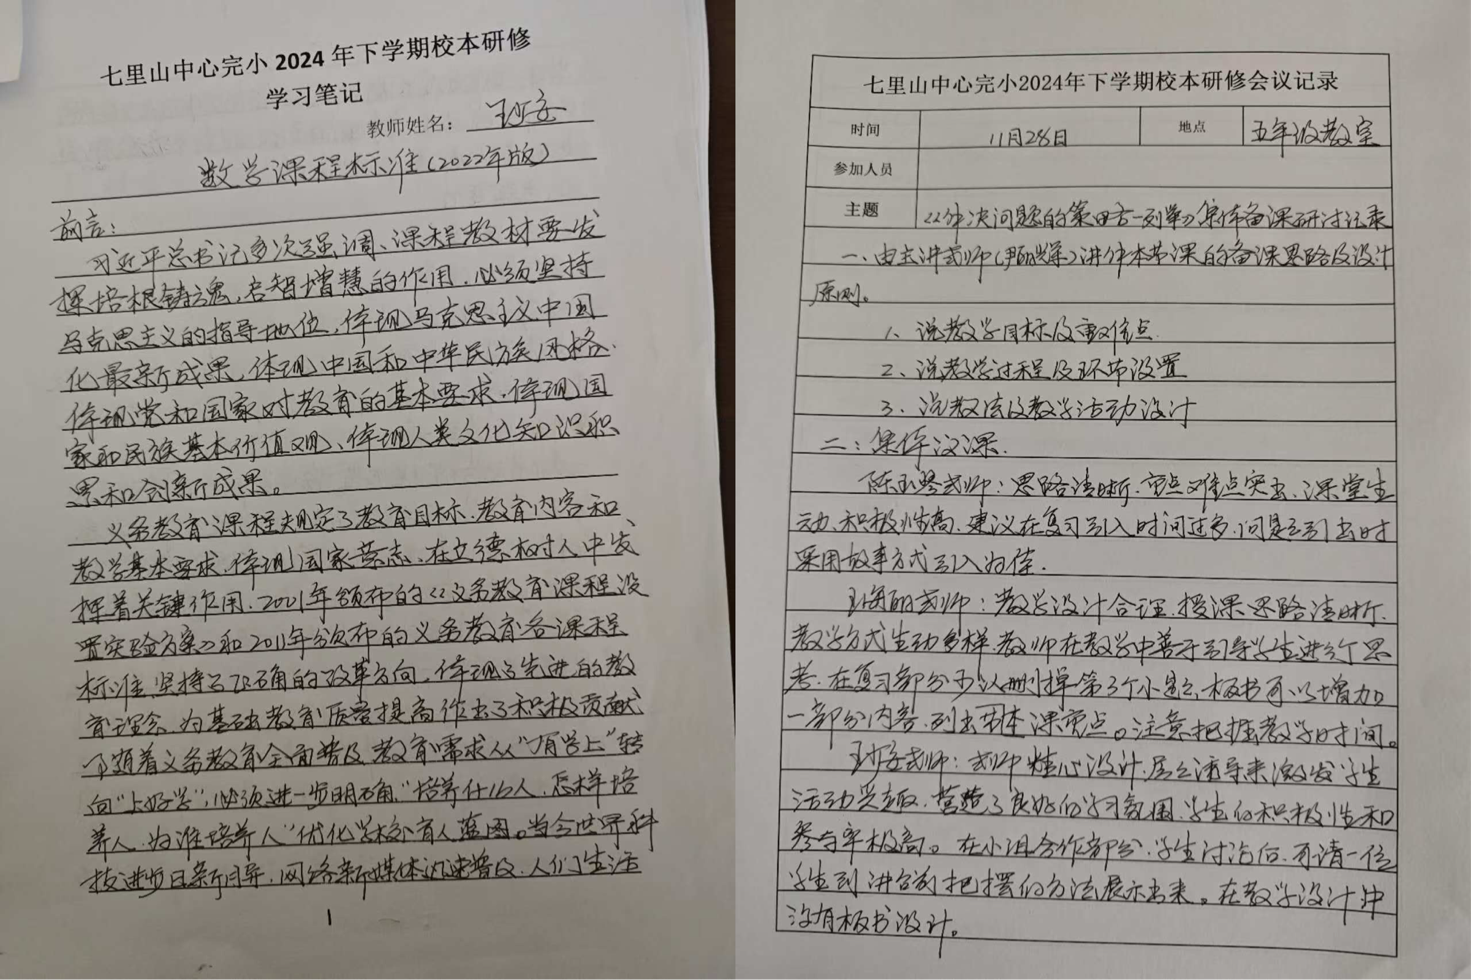 七里山中心完小2024年下学期校本研修
学习笔记
教师姓名：
数学课程标准（2022年版）
前言：
习近平总书记多次强调、课程教材要发
挥培根铸魂，启智增慧的作用，必须坚持
马克思主义的指导地位，体现马克思主义中国
化最新成果，体现中国和中华民族风格、
体现党和国家对教育的基本要求，体现国
家和民族基本价值观，体现人类文化知识积
累和创新成果。
义务教育课程规定了教育目标、教育内容和
教学基本要求，体现国家意志，在立德树人中发
挥着关键作用，2001年颁布的《义务教育课程设
置实验方案》和2011年颁布的义务教育各课程
标准，坚持了正确的改革方向，体现了先进的教
育理念，为基础教育质量提高作出了积极贡献
了随着义务教育全面普及，教育需求从“有学上”转
向“上好学”，必须进一步明确“培养什么人，怎样培
养人，为谁培养人”优化学校育人蓝图。当今世界科
技进步日新月异，网络新媒体迅速普及，人们生活
1
七里山中心完小2024年下学期校本研修会议记录
时间 11月28日 地点 五年级教室
参加人员
主题 《解决问题的策略——列举》集体备课研讨记录
一、由主讲老师（）讲解本节课的备课思路及设计
原则。
1、说教学目标及重难点.
2、说教学过程及环节设置
3、说教法及教学活动设计
二：集体议课.
陈玉琴老师：思路清晰，重点难点突出、课堂生
动、积极性高，建议在复习引入时间过多，问题引出时
采用故事方式引入为佳.
王海丽老师：教学设计合理，授课思路清晰，
教学方式生动多样，教师在教学中善于引导学生进行思
考，在复习部分可以删掉第3个小题，板书可以增加
一部分内容，列出本课重点。注意把握教学时间。
老师：老师精心设计，层层诱导来激发学生
活动兴趣，营造了良好的学习氛围，学生的积极性和
参与率极高。在小组合作部分，学生讨论后，可请一位
学生到讲台前把摆的方法展示出来。在教学设计中
没有板书设计。